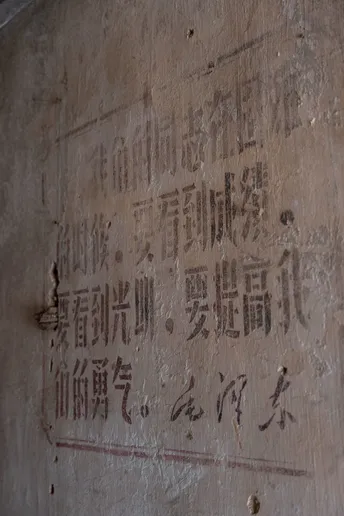 我们的同志在困难
的时候，要看到成绩，
要看到光明，要提高我
们的勇气。毛泽东